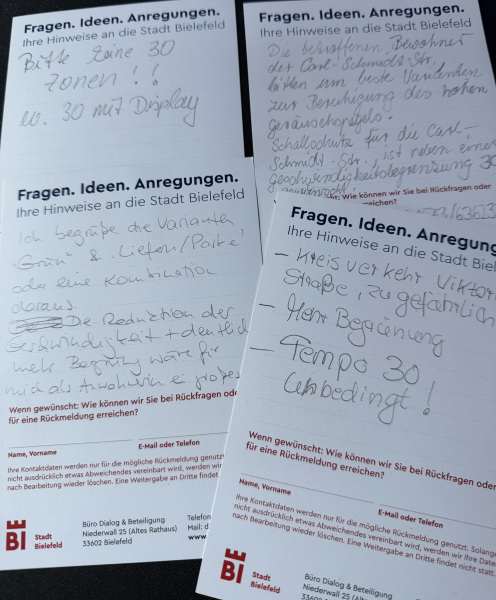 Fragen. Ideen. Anregungen.
Ihre Hinweise an die Stadt Bielefeld
Bitte keine 30
Zonen!!
ev. 30 mit Display
Fragen. Ideen. Anregungen.
Ihre Hinweise an die Stadt Bielefeld
Die betroffenen Bewohner
der Carl-Schmidt-Str.
bitten um beste Varianten
zur Beruhigung des hohen
geräuschspegels.
Schallschutz für die Carl-
Schmidt-Str., ist neben einer
Geschwindigkeitsbegrenzung 30
Wie können wir Sie bei Rückfragen oder
erreichen?
Fragen. Ideen. Anregungen.
Ihre Hinweise an die Stadt Bielefeld
Ich begrüße die Varianten
"Grün" & Liefern/Parke
oder eine Kombination
daraus.
De Reduktion der
Geschwindigkeit + deutlich
mehr Begrünung wäre für
mich als Anwohnerin ein großes
Wenn gewünscht: Wie können wir Sie bei Rückfragen ode
für eine Rückmeldung erreichen?
Name, Vorname
E-Mail oder Telefon
Ihre Kontaktdaten werden nur für die mögliche Rückmeldung genutzt
nicht ausdrücklich etwas Abweichendes vereinbart wird, werden wir
nach Bearbeitung wieder löschen. Eine Weitergabe an Dritte findet
BI
Stadt
Bielefeld
Büro Dialog & Beteiligung
Niederwall 25 (Altes Rathaus)
33602 Bielefeld
Telefon
Mail: d
www.
Fragen. Ideen. Anregung
Ihre Hinweise an die Stadt Biel
- Kreisverkehr Viktor
Straße, zu gefährlich
- Mehr Begrünung
- Tempo 30
unbedingt!
Wenn gewünscht: Wie können wir Sie bei Rückfragen oder
für eine Rückmeldung erreichen?
Name, Vorname
E-Mail oder Telefon
Ihre Kontaktdaten werden nur für die mögliche Rückmeldung genutzt. Solange
nicht ausdrücklich etwas Abweichendes vereinbart wird, werden wir Ihre Date
nach Bearbeitung wieder löschen. Eine Weitergabe an Dritte findet nicht statt.
BI
Stadt
Bielefeld
Büro Dialog & Beteiligung
Niederwall 25 (Altes Rathaus)
33602 Bielefeld